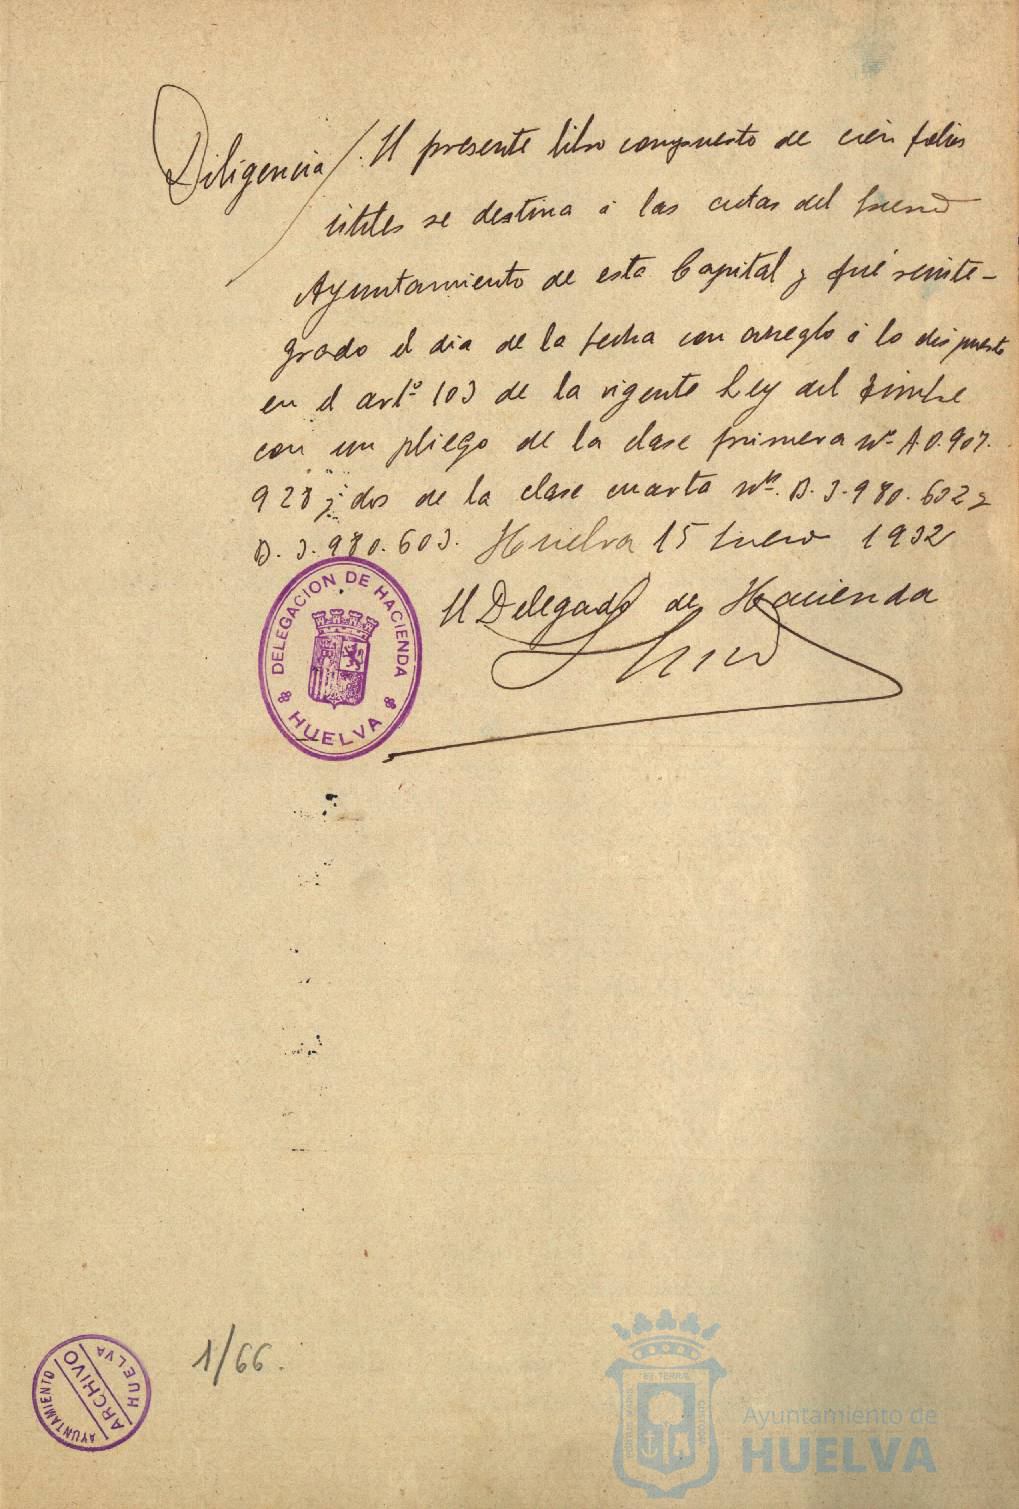 Diligencia/. El presente libro compuesto de cien folios
útiles se destina á las actas del
Ayuntamiento de esta Capital y fué reinte-
grado el dia de la fecha con arreglo á lo dispuesto
en el artº 103 de la vigente Ley del Timbre
con un pliego de la clase primera nº A.0.907.
928 y dos de la clase cuarta nºs. B.3.980.602 y
B.3.980.603. Huelva 15 Enero 1932
El Delegado de Hacienda
DELEGACION DE HACIENDA
HUELVA
1/66.
AYUNTAMIENTO
ARCHIVO
HUELVA
Ayuntamiento de
HUELVA